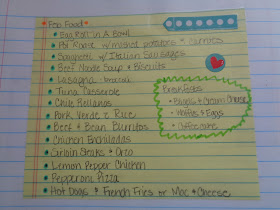 * Feb Food *
• Egg Roll in A Bowl
• Pot Roast w/ mashed potatoes & carrots
• Spaghetti w/ Italian Sausages
• Beef Noodle Soup & Biscuits
• Lasagna - broccoli
• Tuna Casserole
• Chile Rellanos
• Pork Verde & Rice
• Beef & Bean Burritos
• Chicken Enchiladas
• Sirloin Steaks & Orzo
• Lemon Pepper Chicken
• Pepperoni Pizza
• Hot Dogs & French Fries or Mac & Cheese
Breakfasts
• Bagels & Cream Cheese
• Waffles & Eggs
• Coffee Cake